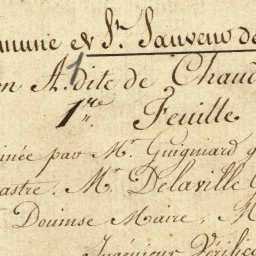 mmune de St. Sauveur de
on A. dite de Chaud
1re. Feuille
inée par Mr. Guigniard g
astre, Mr. Delaville
Doumse Maire, M
Ingénieur Vérific